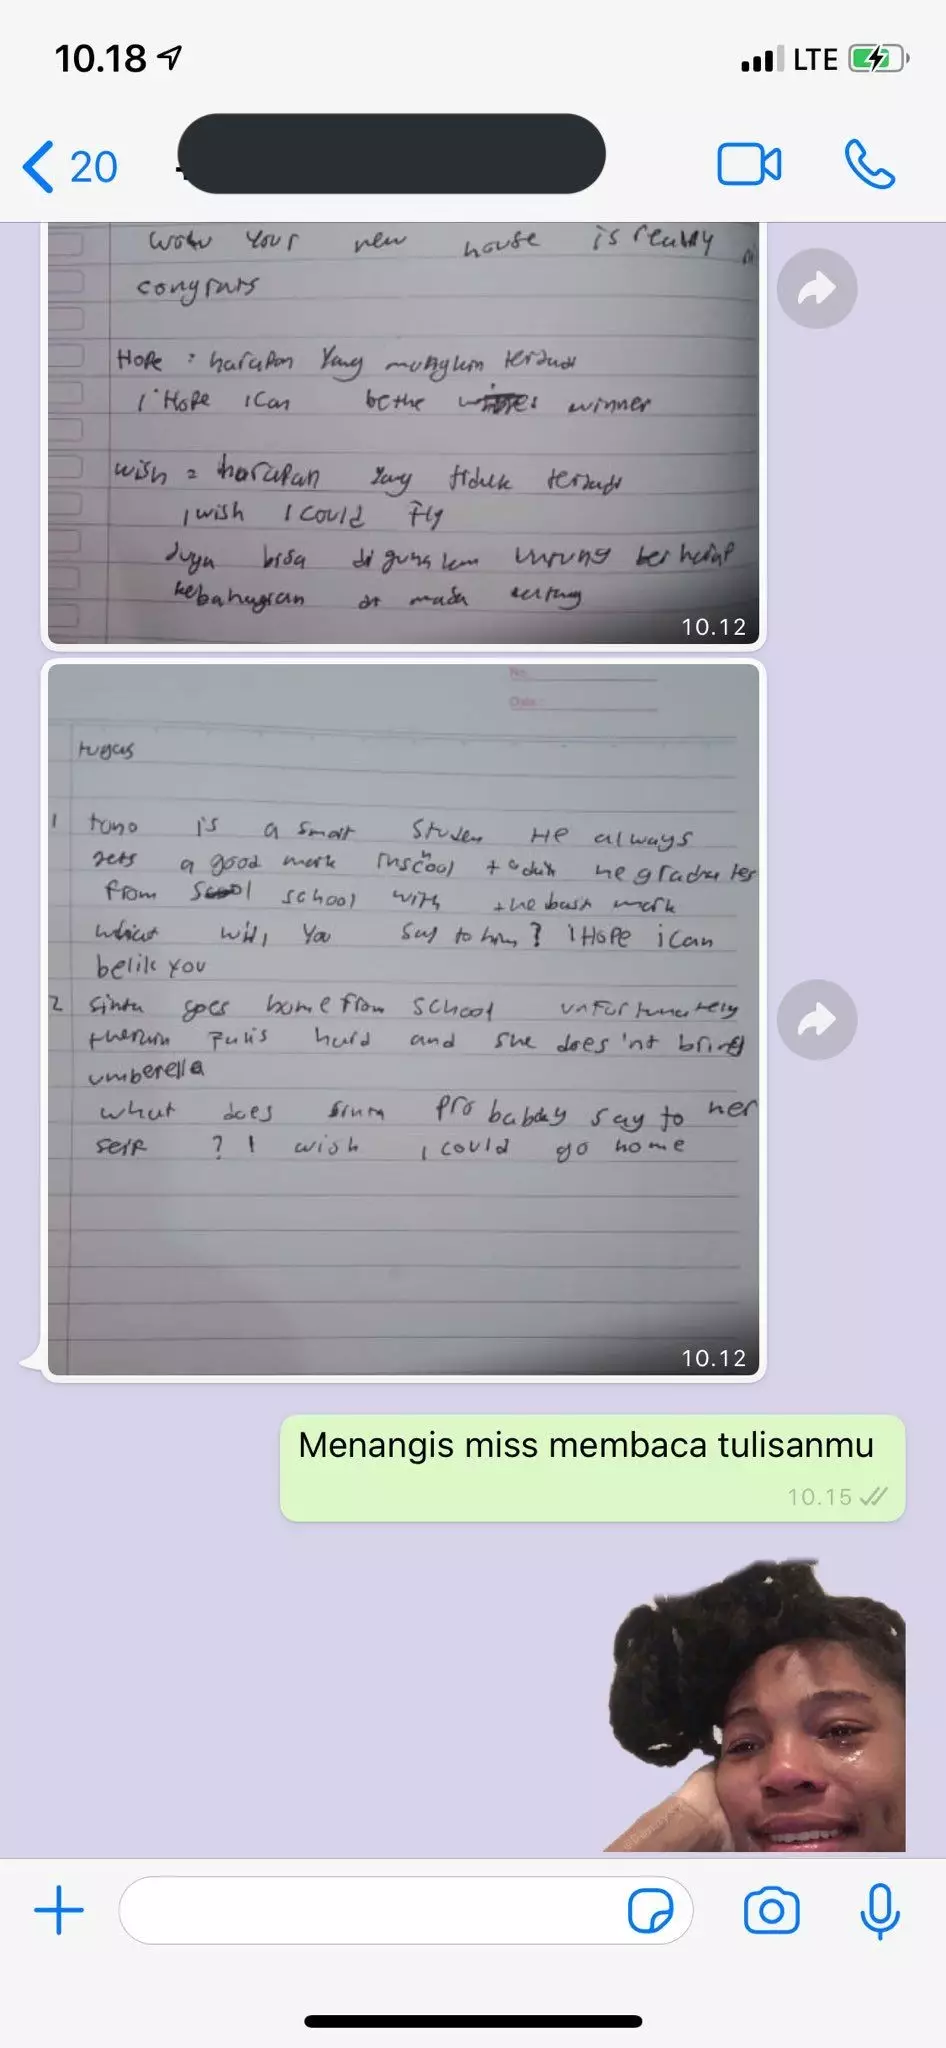 10.18
LTE
20
wow your new house is really
congrats
Hope : harapan yang mungkin terjadi
i Hope i can be the winner
wish = harapan yang tidak terjadi
i wish i could fly
juga bisa di gunakan untung berharap
kebahagian di masa
10.12
No.
Date:
tugas
1 tono is a smart studen He always
gets a good mark inschool today he graduates
from school with the best mark
what will you say to him? i Hope i can
belik you
2 sinta goes home from school unfortunately
therain hard and she does'nt bring
umberella
what does sinta probabley say to her
self ? I wish i could go home
10.12
Menangis miss membaca tulisanmu
10.15